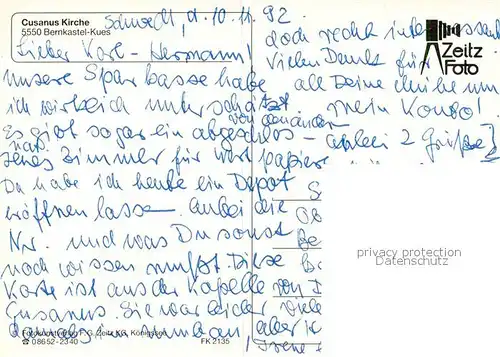 Cusanus Kirche
5550 Bernkastel-Kues
Schwedt, d. 10.11.92
Lieber Karl-Hermann!
unsere Sparkasse habe
ich wirklich unterschätzt.
Es gibt sogar ein von einander abgeschlos-
senes Zimmer für Wertpapiere
Da habe ich heute ein Depot
eröffnen lassen. Anbei die
Nr. und was Du sonst
noch wissen mußt. Diese
Karte ist aus der Kapelle von
Cusanus. Sie war leider
damals im Umbau, aber
Irene
doch recht interessant
Vielen Dank für
all Deine Mühe um
mein Konto!
anbei 2 Grüße
Zeitz
Foto
privacy protection
Datenschutz
Fotokunstverlag F. G. Zeitz KG, Königssee
☎ 08652-2340
FK 2135